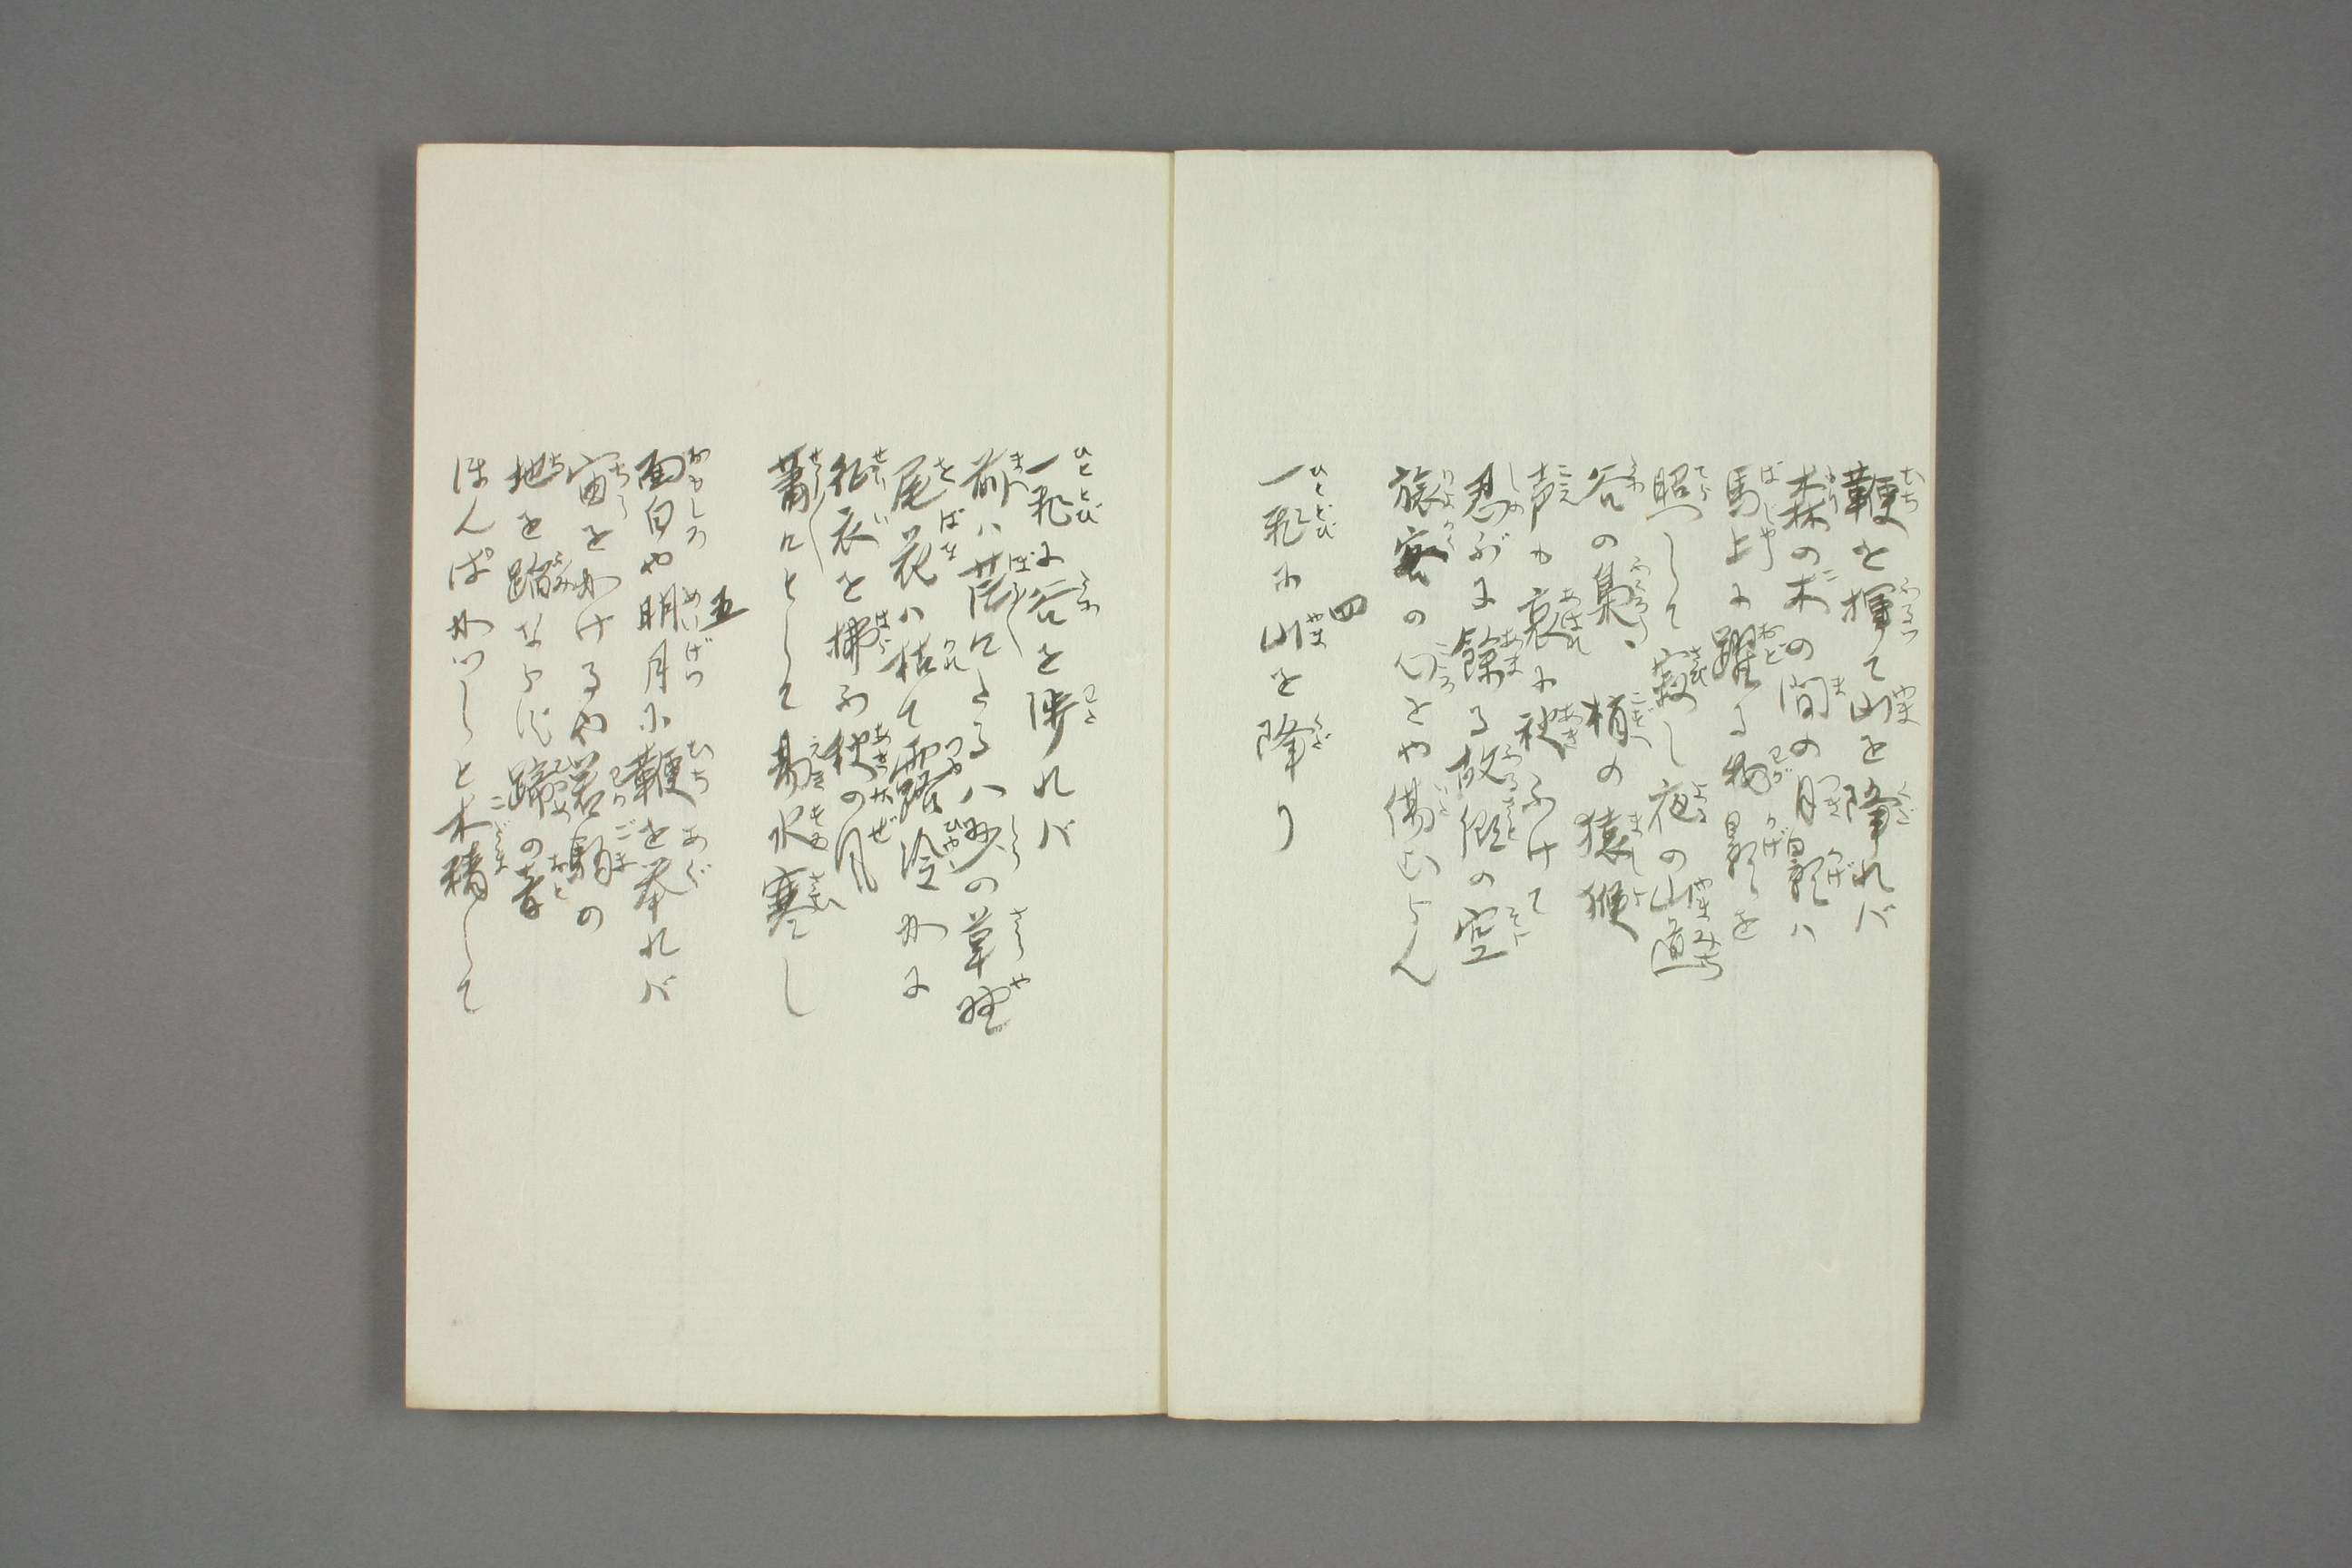 鞭を揮て山を降れバ
森の木の間の月影ハ
馬上に躍る我影を
照つして寂し夜の山道
谷の梟、梢の猿猴
声も哀に秋ふけて
忍ぶに餘る故郷の空
旅客の心をや傷むらん
四
一飛に山を降り
一飛に谷を渉れバ
前ハ茫々たる八州の草野
尾花ハ枯て露冷かに
征衣を拂ふ秋の風
蕭々として易水寒し
五
面白や明月に鞭を挙れバ
宙をかけるや若駒の
地を踏ならす蹄の音
ほんぱかつしと木精して